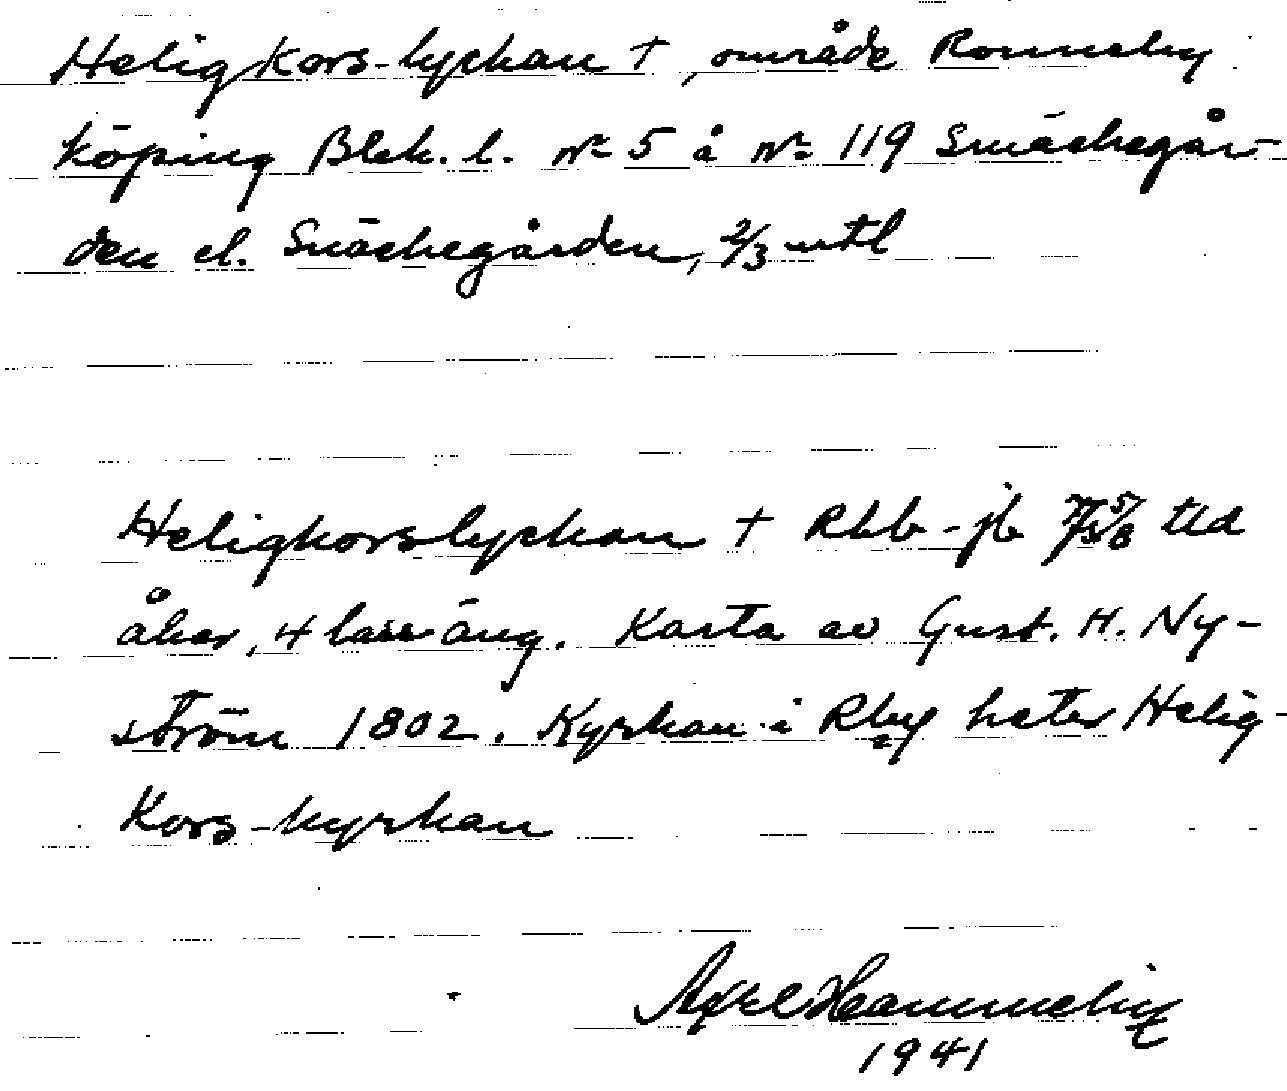 HeligKors-lyckan †, område Ronneby
köping Blek. l. nr 5 å nr 119 Smäckegår-
den el. Snäckegården, 2/3 utl
Heligkorslyckan † Rbb-jb 5/8 tld
åker, 4 lass äng. Karta av Gust. H. Ny-
ström 1802. Kyrkan i Rby heter Helig-
Kors-kyrkan
Axel
1941